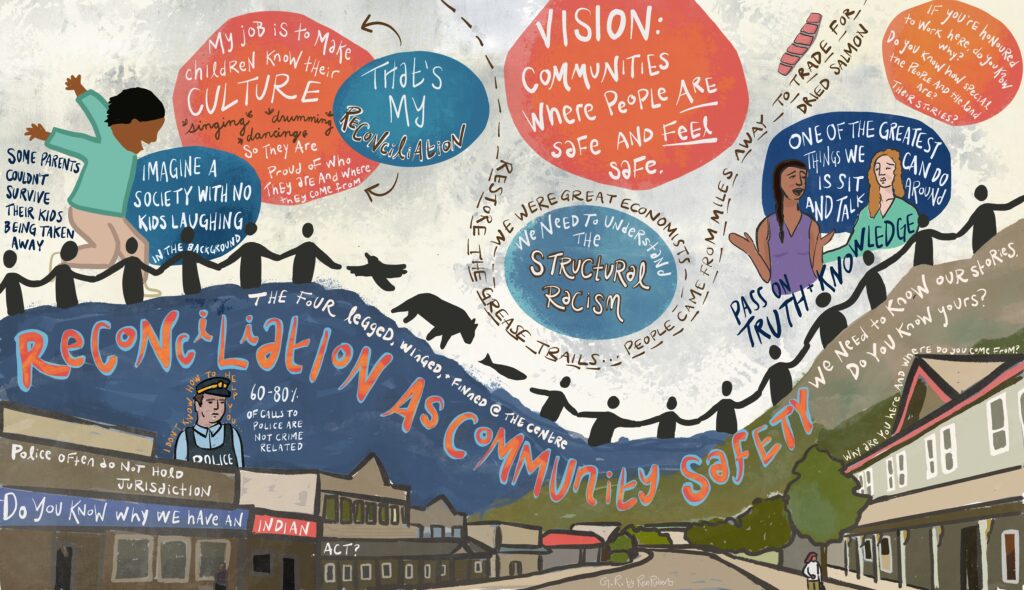 My job is to Make
children know their
CULTURE
"singing" "drumming"
"dancing"
So They Are
Proud of Who
They are And where
they come from
THAT'S
MY
RECONCILIATION
VISION:
COMMUNITIES
Where People ARE
safe AND FEEL
SAFE.
TO TRADE FOR
DRIED SALMON
IF YOU'RE HONOURED
to Work here do you know
Why?
Do you know how special
the people AND the land
ARE?
THEIR STORIES?
Some PARENTS
COULDN'T
SURVIVE
THEIR KIDS
BEING TAKEN
AWAY
IMAGINE A
SOCIETY WITH NO
KIDS LAUGHING
IN THE BACKGROUND
RESTORE THE GREASE TRAILS...
WE WERE GREAT ECONOMISTS
PEOPLE CAME FROM MILES AWAY
We NEED To UNDERSTAND
THE
STRUCTURAL
RACISM
ONE OF THE GREATEST
THINGS WE CAN DO
IS SIT AROUND
AND TALK
PASS ON KNOWLEDGE
TRUTH +
THE FOUR legged, WINGED, + FINNED @ THE CENTRE
RECONCILIATION AS COMMUNITY SAFETY
We Need to Know our stories.
Do You Know yours?
WHY ARE YOU HERE AND WHERE DO YOU COME FROM?
I DON'T KNOW HOW TO HELP YOU
60-80%
OF CALLS TO
POLICE ARE
NOT CRIME
RELATED
POLICE
Police often do NOT HOLD
JURISDICTION
Do You Know why WE HAVE AN
INDIAN
ACT?